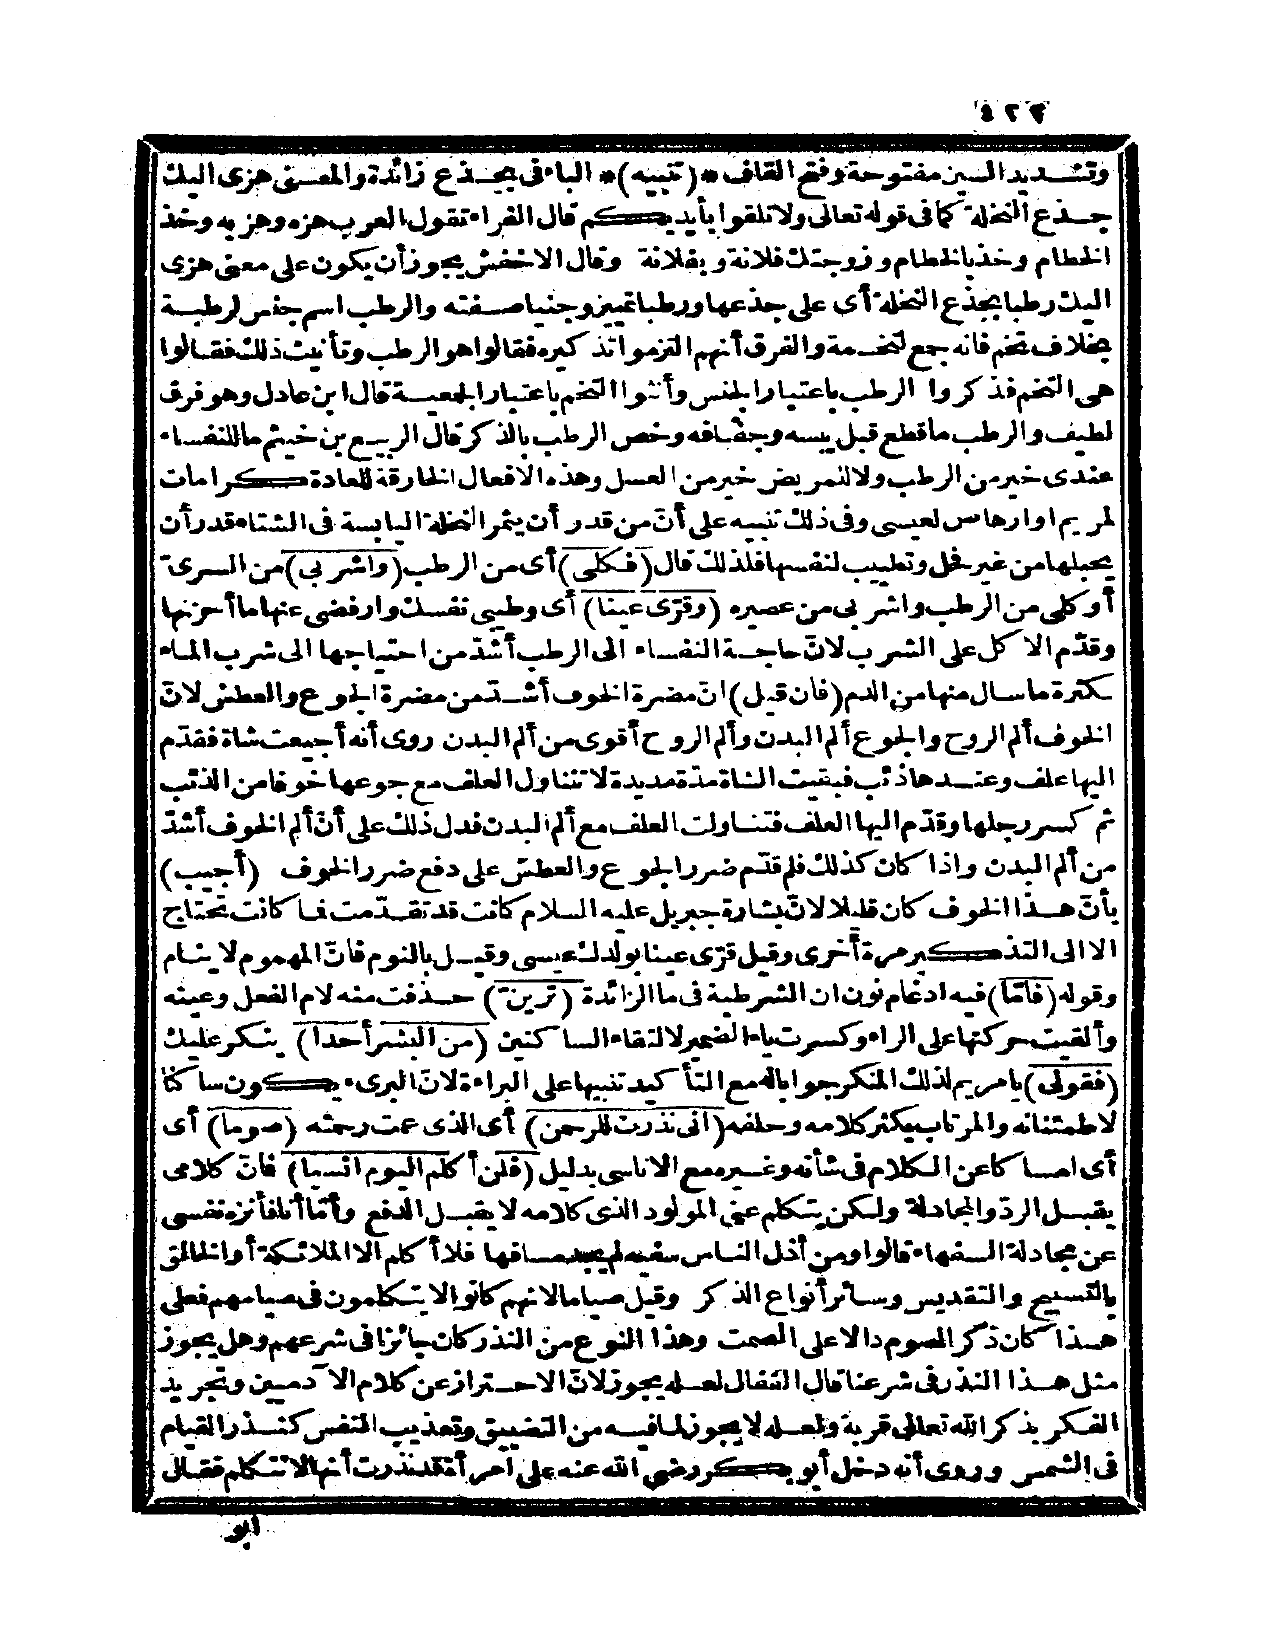 ٤٢٢
وتشديد السين مفتوحة وفتح القاف *(تنبيه)* الباء فى بجذع زائدة والمعنى هزى اليك
جذع النخلة كما فى قوله تعالى ولا تلقوا بأيديكم قال الفراء تقول العرب هزه وهز به وخذ
الخطام وخذ بالخطام وزوجتك فلانة وبفلانة وقال الاخفش يجوز أن يكون على معنى هزى
اليك رطبا بجذع النخلة أى على جذعها ورطبا تمييز وجنيا صفته والرطب اسم جنس لرطبة
بخلاف تخم فانه جمع لتخمة والفرق أنهم التزموا تذكيره فقالوا هو الرطب وتأنيث ذلك فقالوا
هى التخم فذكروا الرطب باعتبار الجنس وأنثوا التخم باعتبار الجمعية قال ابن عادل وهو فرق
لطيف والرطب ما قطع قبل يبسه وجفافه وخص الرطب بالذكر قال الربيع بن خيثم ما للنفساء
عندى خير من الرطب ولا للمريض خير من العسل وهذه الافعال الخارقة للعادة كرامات
لمريم اوارهاص لعيسى وفى ذلك تنبيه على أنّ من قدر أن يثمر النخلة اليابسة فى الشتاء قدر أن
يحبلها من غير فحل وتطييب لنفسها فلذلك قال (فكلى) أى من الرطب (واشربى) من السرى
أو كلى من الرطب واشربى من عصيره (وقرّى عينا) أى وطيبى نفسك وارفضى عنها ما أحزنها
وقدّم الاكل على الشرب لانّ حاجة النفساء الى الرطب أشدّ من احتياجها الى شرب الماء
لكثرة ما سال منها من الدم (فان قيل) انّ مضرة الخوف أشدّ من مضرة الجوع والعطش لانّ
الخوف ألم الروح والجوع ألم البدن وألم الروح أقوى من ألم البدن روى أنه أجيعت شاة فقدّم
اليها علف وعندها ذئب فبقيت الشاة مدّة مديدة لا تتناول العلف مع جوعها خوفا من الذئب
ثم كسر رجلها وقدّم اليها العلف فتناولت العلف مع ألم البدن فدل ذلك على أنّ ألم الخوف أشدّ
من ألم البدن واذا كان كذلك فلم قدّم ضرر الجوع والعطش على دفع ضرر الخوف (أجيب)
بأنّ هذا الخوف كان قليلا لانّ بشارة جبريل عليه السلام كانت قد تقدّمت فما كانت تحتاج
الا الى التذكير مرة أخرى وقيل قرّى عينا بولدك عيسى وقيل بالنوم فانّ المهموم لا ينام
وقوله (فامّا) فيه ادغام نون ان الشرطية فى ما الزائدة (ترينّ) حذفت منه لام الفعل وعينه
وألقيت حركتها على الراء وكسرت ياء الضمير لالتقاء الساكنين (من البشر أحدا) ينكر عليك
(فقولى) يا مريم لذلك المنكر جوابا له مع التأكيد تنبيها على البراءة لانّ البرىء يكون ساكنا
لاطمئنانه والمرتاب يكثر كلامه وحلفه (انى نذرت للرحمن) أى الذى عمت رحمته (صوما) أى
أى امساكا عن الكلام فى شأنه وغيره مع الاناسى بدليل (فلن أكلم اليوم انسيا) فانّ كلامى
يقبل الردّ والمجادلة ولكن يتكلم عنى المولود الذى كلامه لا يقبل الدفع وأمّا أنا فأنزه نفسى
عن مجادلة السفهاء قالوا ومن أذل الناس سفيه لم يجد مسافها فلا أكلم الا الملائكة أو الخالق
بالتسبيح والتقديس وسائر أنواع الذكر وقيل صياما لانهم كانوا لا يتكلمون فى صيامهم فعلى
هذا كان ذكر الصوم دالا على الصمت وهذا النوع من النذر كان جائزا فى شرعهم وهل يجوز
مثل هذا النذر فى شرعنا قال القفال لعله يجوز لانّ الاحتراز عن كلام الآدميين وتجريد
الفكر بذكر الله تعالى قربة ولعله لا يجوز لما فيه من التضييق وتعذيب النفس كنذر القيام
فى الشمس وروى أنه دخل أبو بكر رضى الله عنه على امرأة قد نذرت أنها لا تتكلم فقال
ابو